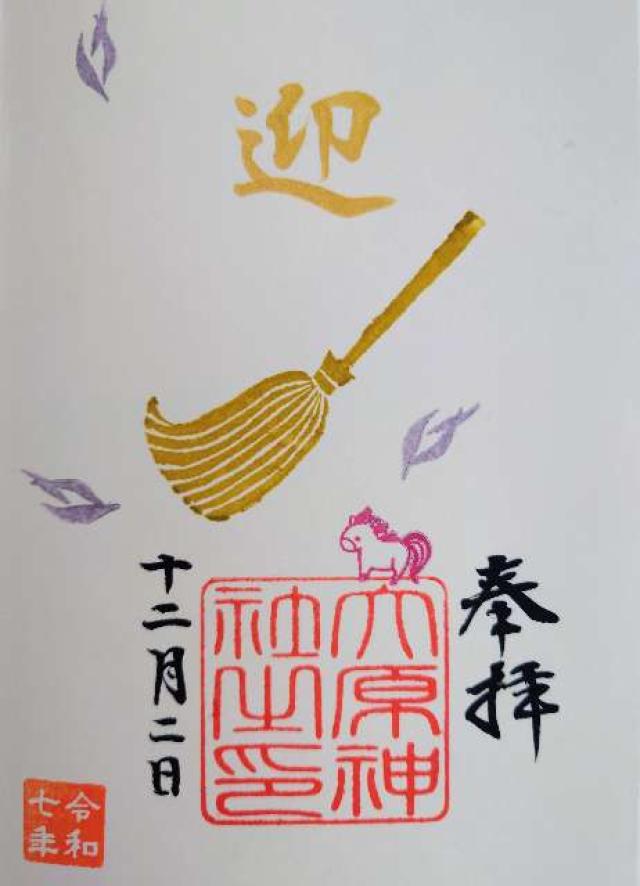 迎
奉拝
大原神
社之印
十二月二日
令和
七年